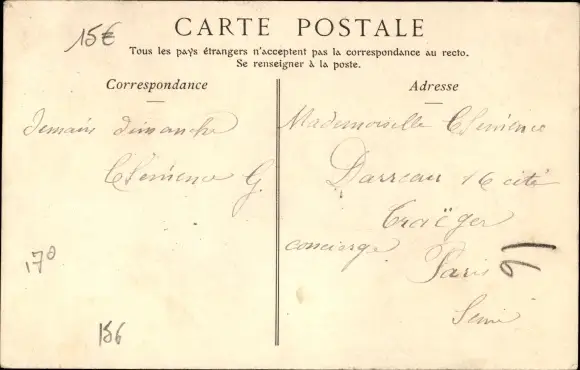 15€
CARTE POSTALE
Tous les pays étrangers n'acceptent pas la correspondance au recto.
Se renseigner à la poste.
Correspondance
demain dimanche
Clémence G.
170
156
Adresse
Mademoiselle Clémence
Darreau 16 cité
Traëger
concierge
Paris
Seine